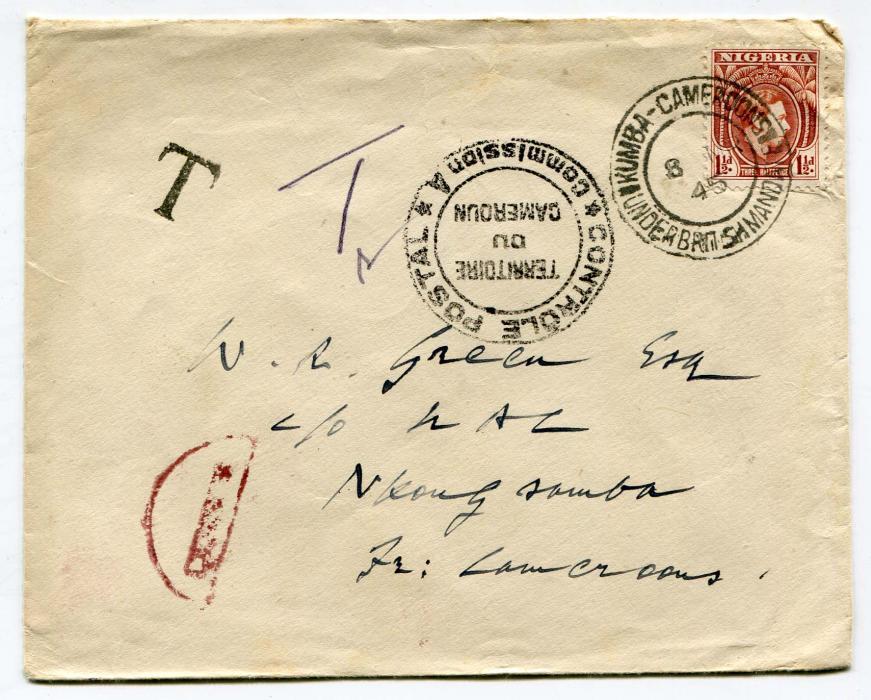 NIGERIA
1½d. THREE HALFPENCE 1½d.
KUMBA-CAMEROONS
8
45
UNDER BRITISH MANDATE
T
T
★ CONTROLE POSTAL ★
Commission A
TERRITOIRE
DU
CAMEROUN
N. R. Green Esq
c/o U A C
Nkongsamba
Fr: Cameroons.